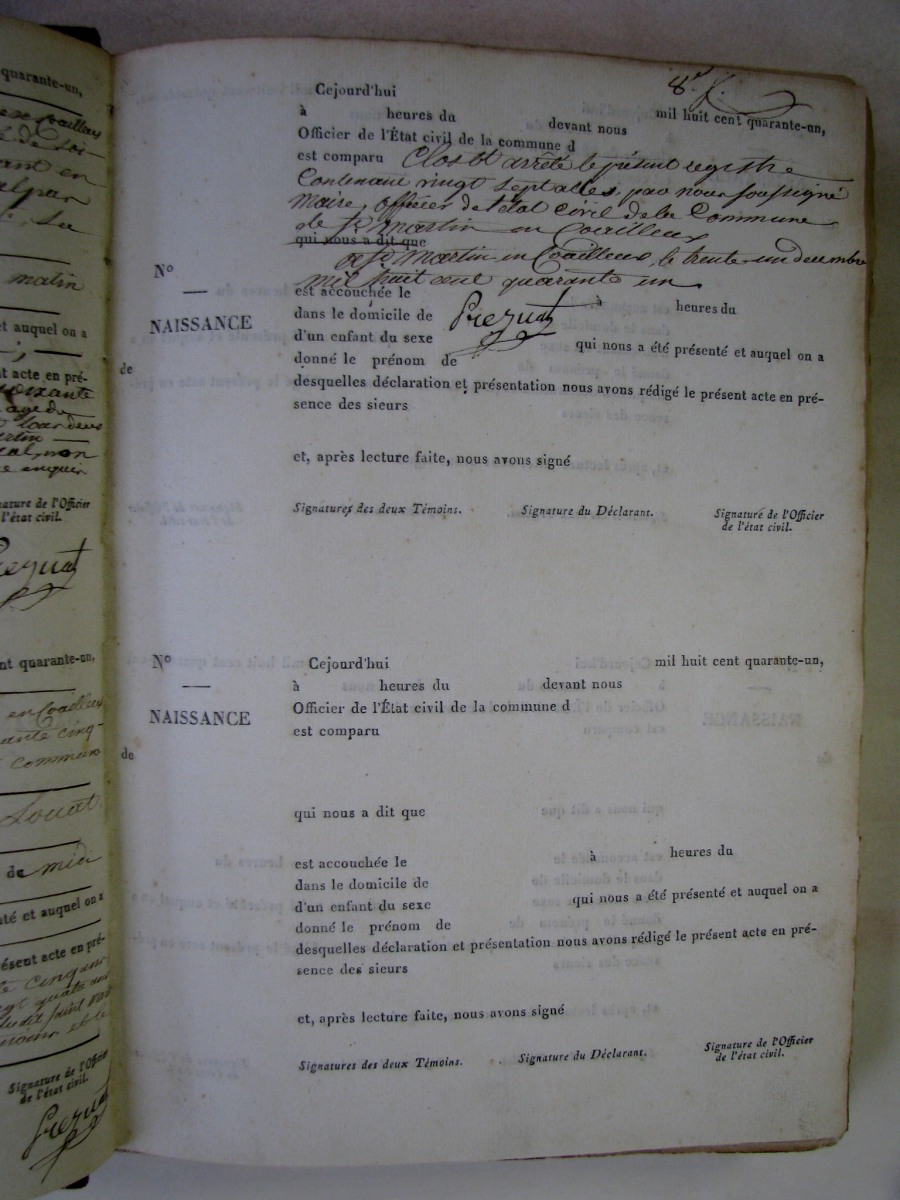 quarante-un,
matin
et auquel on a
nt acte en pré-
Signature de l'Officier
l'état civil.
Prezuat
nt quarante-un,
en Coailleux
ante cinq
commune
Louat
de midi
nté et auquel on a
résent acte en pré-
Signature de l'Officier
de l'état civil.
Prezuat
8e f.
Cejourd'hui
mil huit cent quarante-un,
à heures du devant nous
Officier de l'État civil de la commune d
est comparu Clos et arrêté le présent registre
Contenant vingt sept actes, par nous soussigné
Maire, officier de l'état civil de la Commune
de St Martin en Coailleux
qui nous a dit que
a St Martin en Coailleux, le trente un decembre
mil huit cent quarante un
No
NAISSANCE
de
est accouchée le à heures du
dans le domicile de Prezuat
d'un enfant du sexe qui nous a été présenté et auquel on a
donné le prénom de
desquelles déclaration et présentation nous avons rédigé le présent acte en pré-
sence des sieurs
et, après lecture faite, nous avons signé
Signatures des deux Témoins. Signature du Déclarant. Signature de l'Officier
de l'état civil.
No
NAISSANCE
de
Cejourd'hui mil huit cent quarante-un,
à heures du devant nous
Officier de l'État civil de la commune d
est comparu
qui nous a dit que
est accouchée le à heures du
dans le domicile de
d'un enfant du sexe qui nous a été présenté et auquel on a
donné le prénom de
desquelles déclaration et présentation nous avons rédigé le présent acte en pré-
sence des sieurs
et, après lecture faite, nous avons signé
Signatures des deux Témoins. Signature du Déclarant. Signature de l'Officier
de l'état civil.